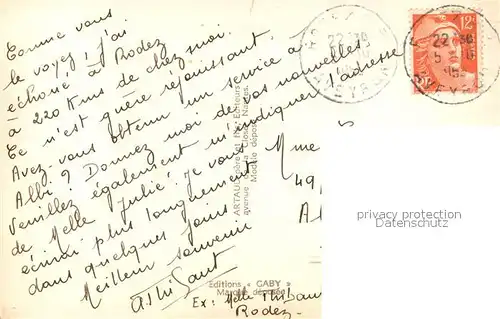 Comme vous
le voyez, j'ai
échoué à Rodez
à 220 Kms de chez moi.
Ce n'est guère réjouissant.
Avez-vous obtenu un service à
Albi? Donnez moi de vos nouvelles.
Veuillez également m'indiquer l'adresse
de Melle Julié. Je vous
écrirai plus longuement
dans quelques jours
Meilleur souvenir
Ex: Melle
Rodez
Mme
49,
ARTAUD Père et Fils Editeurs
avenue de la Close Nantes.
Modèle déposé
Editions « GABY »
Marque déposée
22 - 30
5
AVEYRON
12F
22 - 30
5
AVEYRON
privacy protection
www.oldthing.de